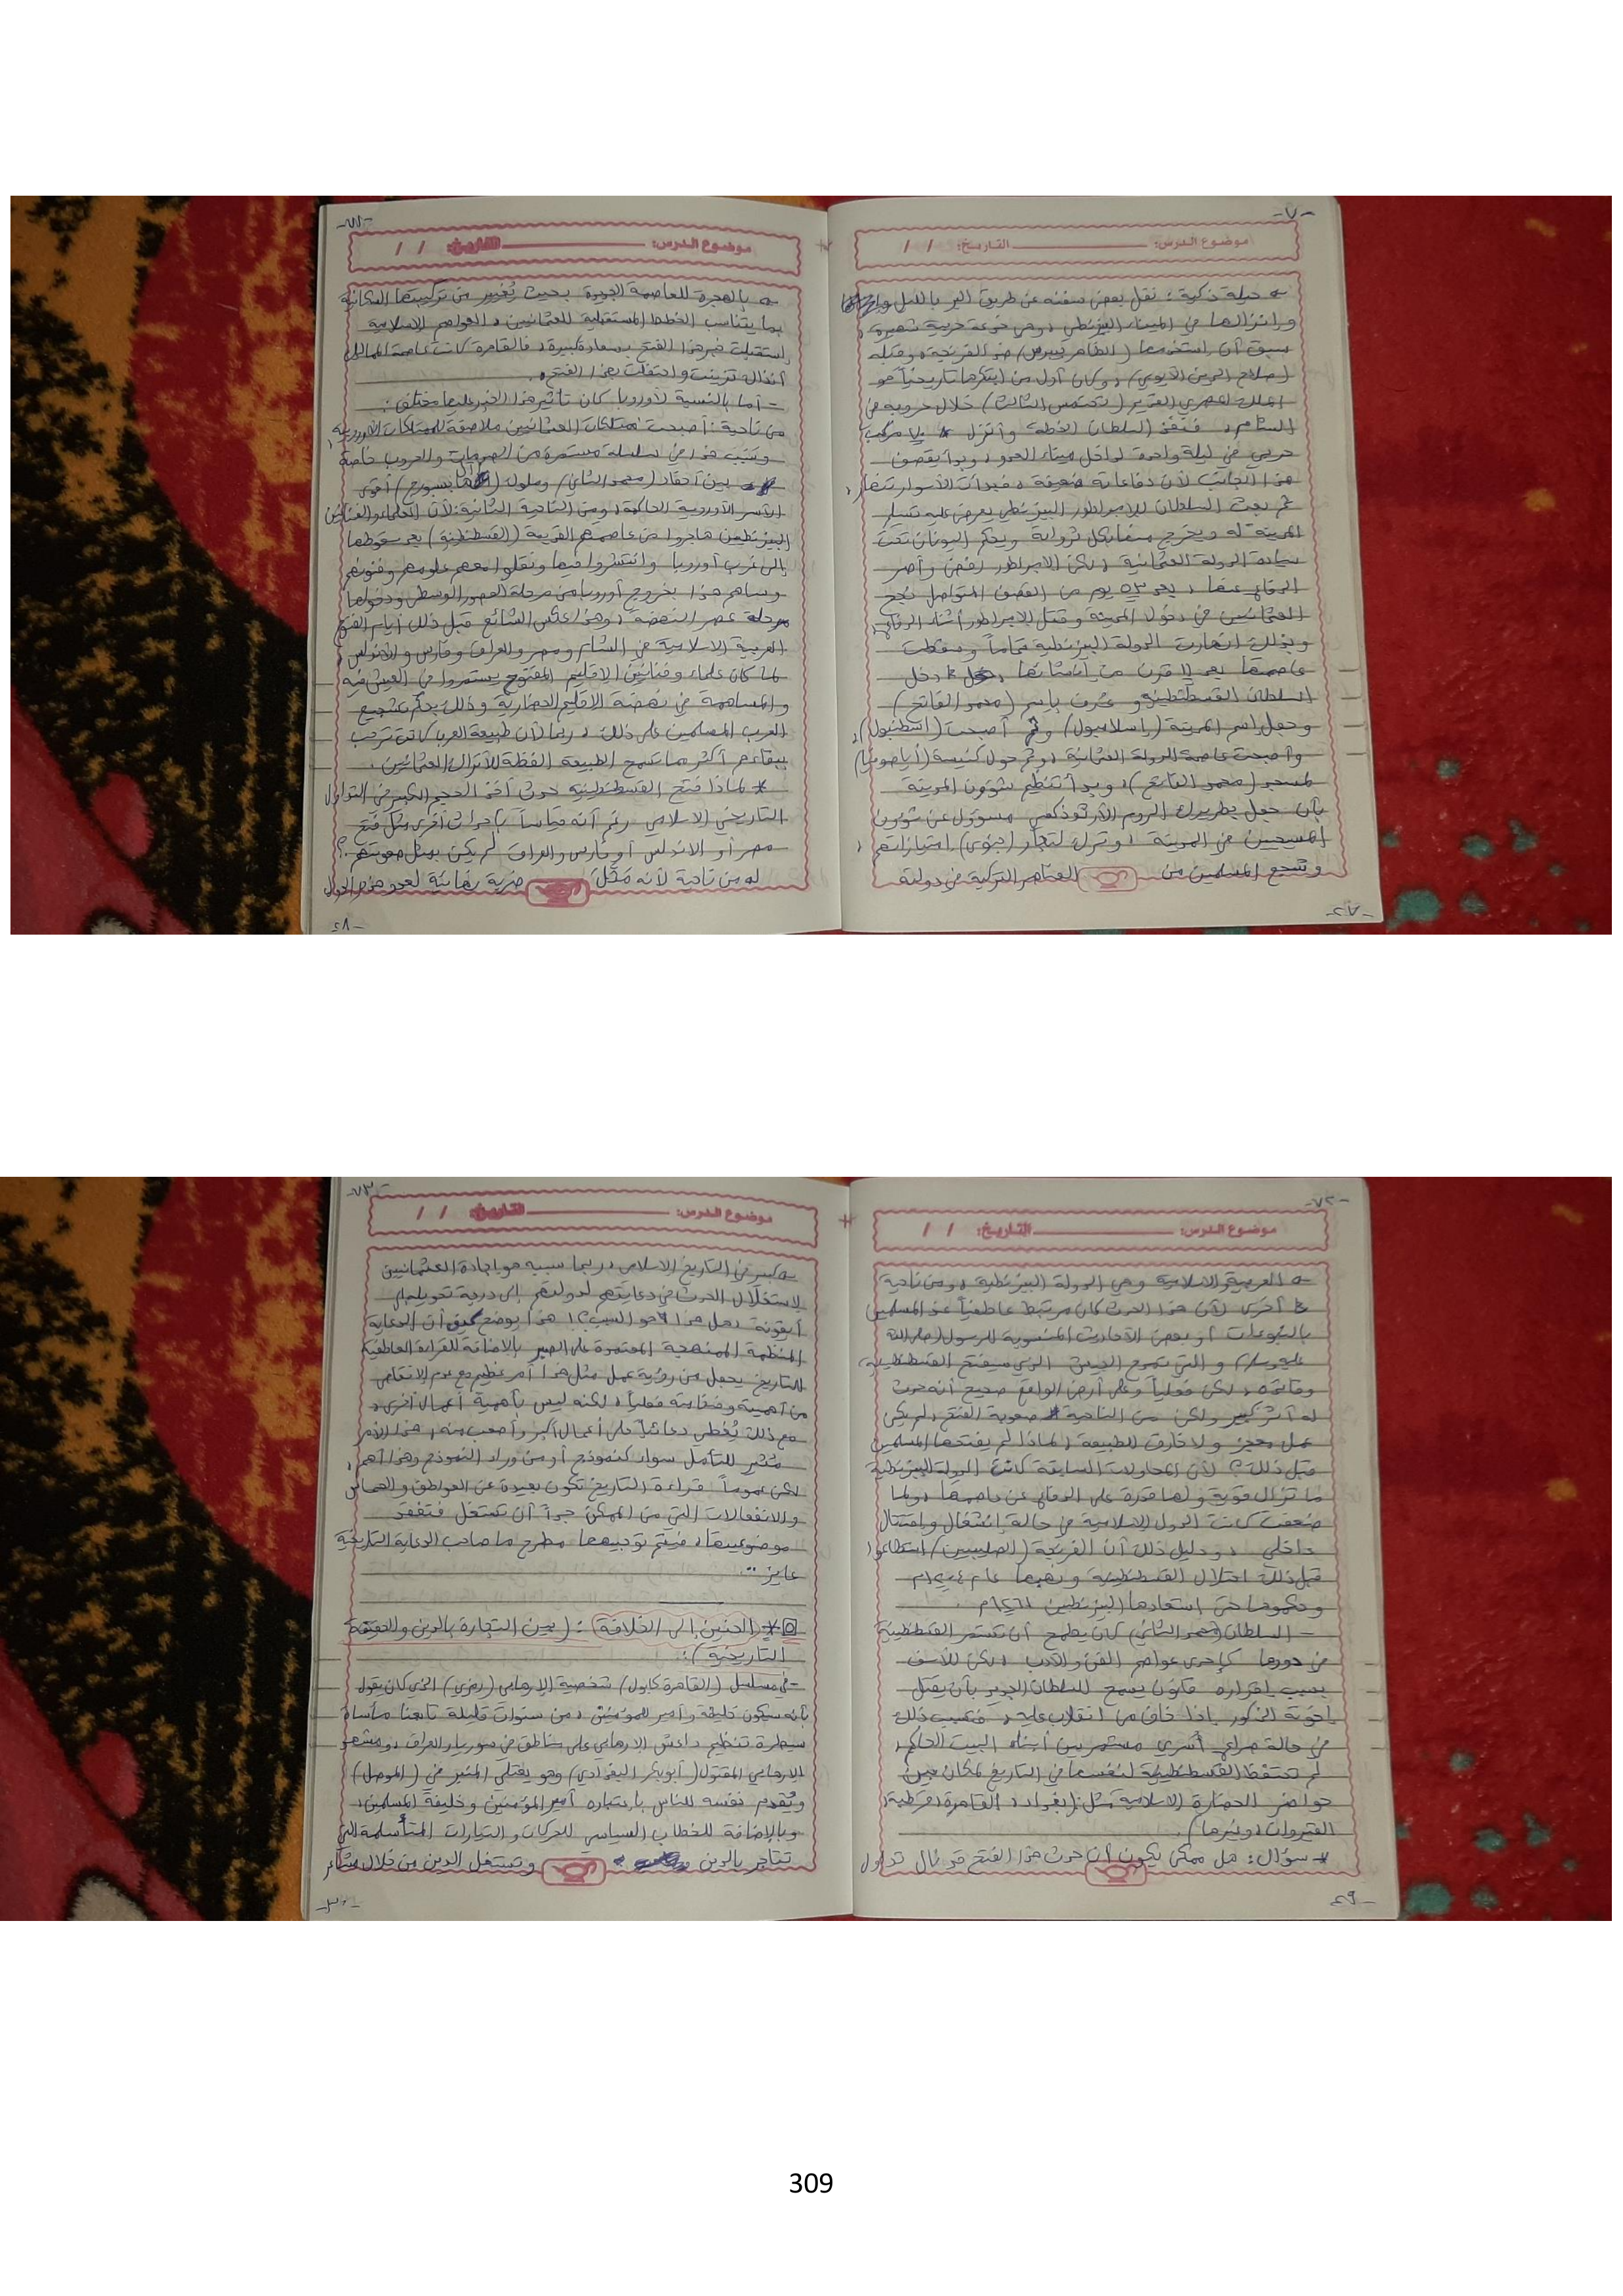 -٧٠-
موضوع الدرس: التاريخ: / /
حيلة ذكية: نقل بعض سفنه عن طريق البر بالليل
وإنزالها في الميناء البيزنطي، وهي خدعة حربية شهيرة،
سبق أن استخدمها (الظاهر بيبرس) ضد الفرنجة، وقبله
(صلاح الدين الأيوبي)، وكان أول من ابتكرها تاريخياً هو
الملك المصري القدير (تحتمس الثالث) خلال حروبه في
الشام، فنفذ السلطان الخطة وأنزل ٧٠ مركب
حربي في ليلة واحدة لداخل ميناء العدو، وبدأ يقصف
هذا الجانب لأن دفاعاته ضعيفة، فبدأت الأسوار تنهار،
ثم بعث السلطان للإمبراطور البيزنطي يعرض عليه تسليم
المدينة له ويخرج منها بكل ثرواته ويحكم اليونان تحت
سيادة الدولة العثمانية، لكن الإمبراطور رفض وأصر
الدفاع عنها، بعد ٥٣ يوم من القصف المتواصل نجح
العثمانيين في دخول المدينة وقتل الإمبراطور أثناء الدفاع،
وبذلك انهارت الدولة البيزنطية تماماً وسقطت
عاصمتها بعد ١١ قرن من إنشائها، دخل
السلطان القسطنطينية وعُرف باسم (محمد الفاتح)
وجعل اسم المدينة (إسلامبول) ثم أصبحت (إسطنبول)،
وأصبحت عاصمة الدولة العثمانية، وتم حول كنيسة (أيا صوفيا)
لمسجد (محمد الفاتح)، وبدأ تنظيم شؤون المدينة
بأن جعل بطريرك الروم الأرثوذكس مسؤول عن شؤون
المسيحيين في المدينة، وترك لتجار (جنوى) امتيازاتهم،
وشجع المسلمين من العناصر التركية في دولته
-٢٧-
-٧١-
موضوع الدرس: التاريخ: / /
بالهجرة للعاصمة الجديدة بحيث يُغير من تركيبتها السكانية
بما يتناسب الخطط المستقبلية للعثمانيين، العواصم الإسلامية
استقبلت خبر هذا الفتح بسعادة كبيرة، فالقاهرة كانت عاصمة المماليك
آنذاك تزينت واحتفلت بهذا الفتح.
- أما بالنسبة لأوروبا كان تأثير هذا الخبر عليها مختلف:
من ناحية: أصبحت ممتلكات العثمانيين ملاصقة للممتلكات الأوروبية،
وتسبب هذا في سلسلة مستمرة من الصدامات والحروب خاصة
بين أحفاد (محمد الثاني) وملوك (آل هابسبورج) أقوى
الأسر الأوروبية الحاكمة، ومن الناحية الثانية: لأن العلماء والفنانين
البيزنطيين هاجروا من عاصمتهم القديمة (القسطنطينية) بعد سقوطها
إلى غرب أوروبا وانتشروا فيها ونقلوا معهم علومهم وفنونهم
وساهم هذا بخروج أوروبا من مرحلة العصور الوسطى ودخولها
مرحلة عصر النهضة، وهذا عكس الشائع قبل ذلك أيام الفتوح
العربية الإسلامية في الشام ومصر والعراق وفارس والأندلس،
لما كان علماء وفنانين الإقليم المفتوح يستمروا في العيش فيه
والمساهمة في نهضة الأقاليم الحضارية وذلك بحكم تشجيع
العرب المسلمين على ذلك، ربما لأن طبيعة العرب كانت ترحب
ببقائهم أكثر مما تسمح الطبيعة الفظة للأتراك العثمانيين.
* لماذا فتح القسطنطينية حدث أخذ الحجم الكبير في التداول
التاريخي الإسلامي رغم أنه قياساً بأحداث أخرى مثل فتح
مصر أو الأندلس أو فارس والعراق لم يكن بمثل صعوبتهم؟
من ناحية لأنه مَثّل ضربة نهائية لعدو هذه الدول
-٢٨-
-٧٢-
موضوع الدرس: التاريخ: / /
العربية الإسلامية وهي الدولة البيزنطية، ومن ناحية
أخرى لأن هذا الحدث كان مرتبط عاطفياً عند المسلمين
بالنبوءات أو بعض الأحاديث المنسوبة للرسول (صلى الله
عليه وسلم) والتي تمدح الجيش الذي سيفتح القسطنطينية
وقائده، لكن فعلياً وعلى أرض الواقع صحيح أنه حدث
له أثر كبير ولكن من الناحية صعوبة الفتح، لم يكن
عمل معجز ولا خارق للطبيعة، لماذا لم يفتحها المسلمين
قبل ذلك؟ لأن المحاولات السابقة كانت الدولة البيزنطية
ما تزال قوية ولها قدرة على الدفاع عن عاصمتها، ولما
ضعفت كانت الدول الإسلامية في حالة انشغال واقتتال
داخلي، ودليل ذلك أن الفرنجة (الصليبيين) استطاعوا
قبل ذلك احتلال القسطنطينية ونهبها عام ١٢٠٤م
وحكموها حتى استعادها البيزنطيين ١٢٦١م.
- السلطان (محمد الثاني) كان يطمح أن تستمر القسطنطينية
في دورها كإحدى عواصم الفن والأدب، لكن للأسف
بسبب إقراره قانون يسمح للسلطان الجديد بأن يقتل
إخوته الذكور إذا خاف من انقلاب عليه، فتسبب ذلك
في حالة صراع أسري مستمر بين أبناء البيت الحاكم،
لم تحتفظ القسطنطينية لنفسها في التاريخ بمكان بين
حواضر الحضارة الإسلامية مثل: (بغداد، القاهرة، قرطبة،
القيروان، وغيرها).
* سؤال: هل ممكن يكون أن حدث هذا الفتح قد نال تداول
-٢٩-
-٧٣-
موضوع الدرس: التاريخ: / /
كبير في التاريخ الإسلامي ربما سببه هو إجادة العثمانيين
لاستغلال الحدث في دعايتهم لدولتهم إلى درجة تحويله إلى
أيقونة، هل هذا هو السبب؟! هذا يوضح كيف أن الدعاية
المنظمة الممنهجة المعتمدة على الصبر بالإضافة للقراءة العاطفية
للتاريخ يجعل من رؤية عمل مثل هذا أمر عظيم مع عدم الانتقاص
من أهميته وضخامته فعلياً، لكنه ليس بأهمية أعمال أخرى،
مع ذلك يُغطي دعائياً على أعمال أكبر وأصعب منه، هذا الأمر
مثير للتأمل سواء كنموذج أو من وراء النموذج وهذا أهم،
لكن عموماً: قراءة التاريخ تكون بعيدة عن العواطف والحماس
والانفعالات التي من الممكن جداً أن تُستغل فتفقد
موضوعيتها، فيتم توجيهها مطرح ما صاحب الدعاية التاريخية
عايز..
* (الحنين إلى الخلافة): (بين التجارة بالدين والحقيقة
التاريخية):
- في مسلسل (القاهرة كابول) شخصية الإرهابي (رمزي) الذي كان يقول
بأنه سيكون خليفة وأمير للمؤمنين، من سنوات قليلة تابعنا مأساة
سيطرة تنظيم داعش الإرهابي على مناطق في سوريا والعراق، ومشهد
الإرهابي المقتول (أبو بكر البغدادي) وهو يعتلي المنبر في (الموصل)
ويُقدم نفسه للناس باعتباره أمير المؤمنين وخليفة المسلمين،
وبالإضافة للخطاب السياسي للحركات والتيارات المتأسلمة التي
تتاجر بالدين وتستغل الدين من خلال
-٣٠-
309